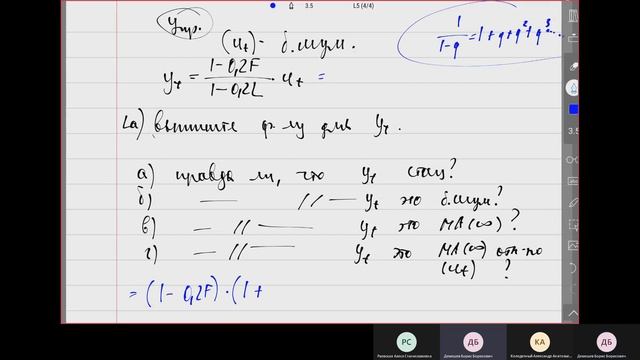 3.5 L5 (4/4)
Упр.
(u_t) - б. шум.
1/(1-q) = 1 + q + q² + q³ ...
y_t = (1 - 0,2F)/(1 - 0,2L) · u_t =
выпишите ф-лу для y_t.
а) правда ли, что y_t стац?
б) — // — y_t это б. шум?
в) — // — y_t это MA(∞)?
г) — // — y_t это MA(∞) отн-но (u_t)?
= (1 - 0,2F) · (1 +
3.5
РС ДБ КА ДБ
Демешев Борис Борисович
Демешев Борис Борисович